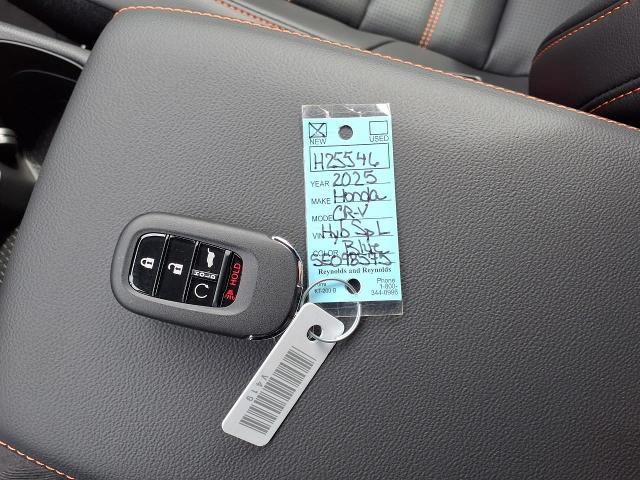 NEW USED
H25546
YEAR 2025
MAKE Honda
MODEL CR-V
VIN Hyb Sp L
COLOR Blue
SE098575
Reynolds and Reynolds
KT-200 B
Phone
1-800-
344-0996
HOLD
HOLD
V419